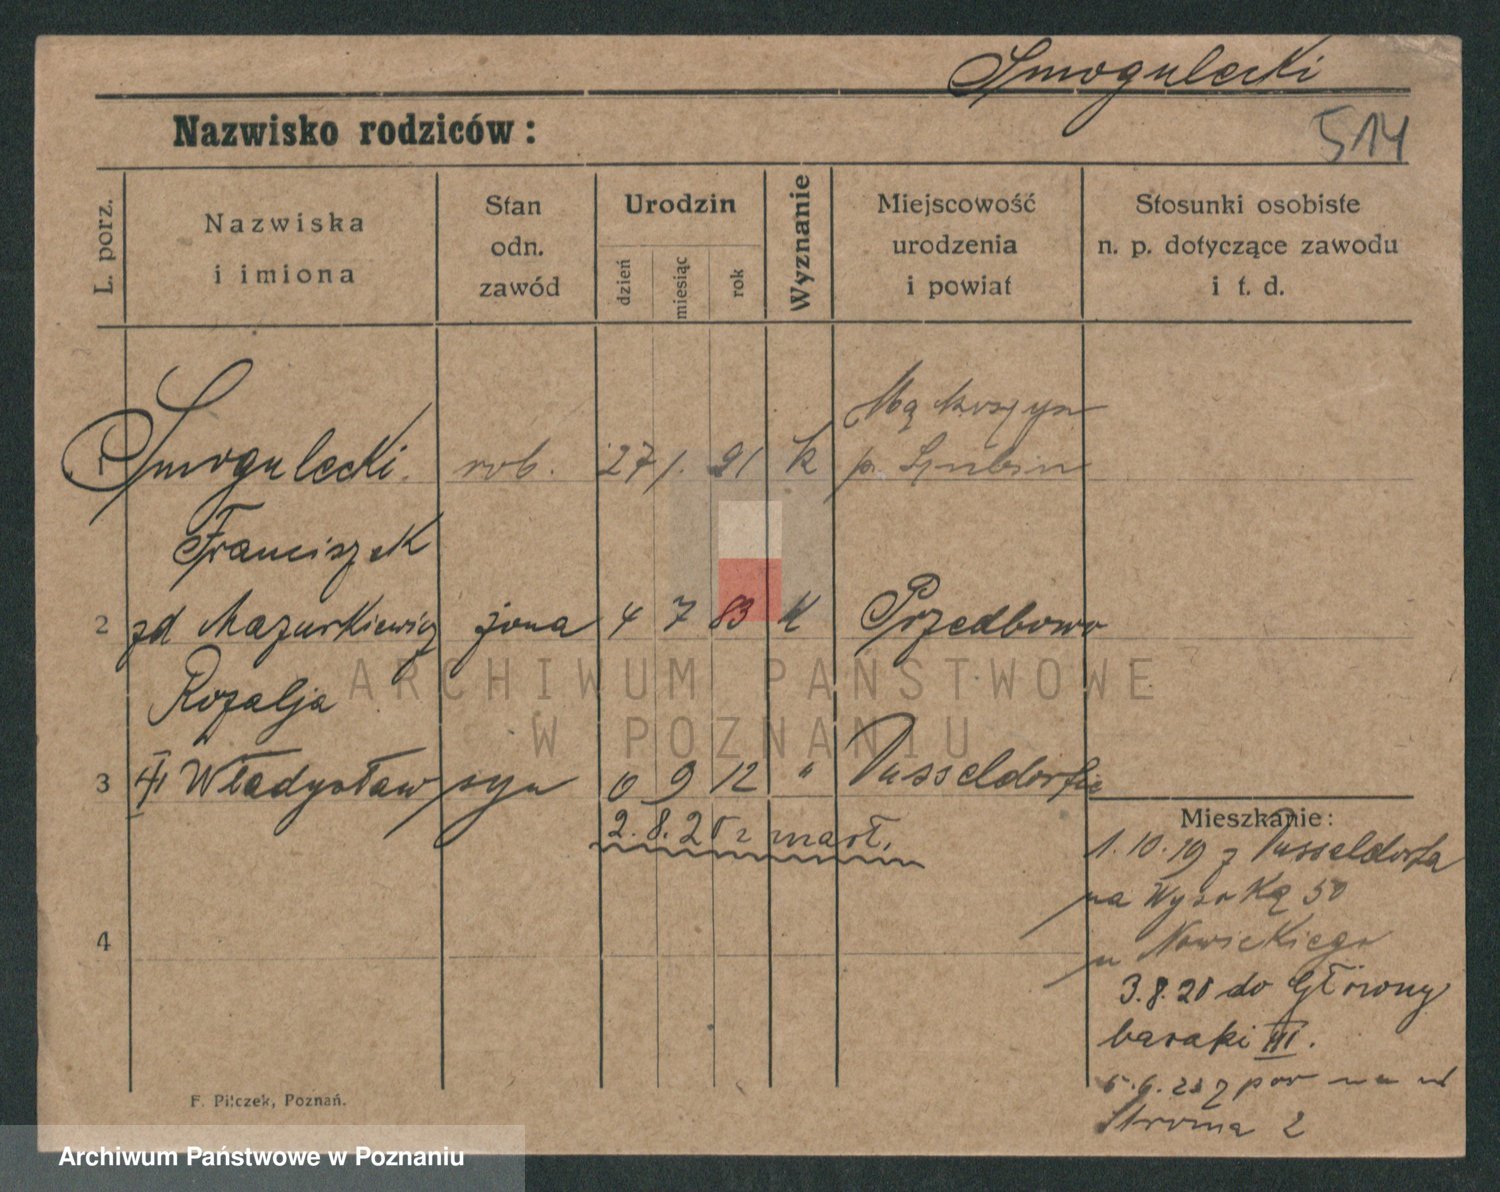 Smogulecki
Nazwisko rodziców:
514
L. porz.
Nazwiska
i imiona
Stan
odn.
zawód
Urodzin
dzień
miesiąc
rok
Wyznanie
Miejscowość
urodzenia
i powiat
Stosunki osobiste
n. p. dotyczące zawodu
i t. d.
Mąkoszyn
1 Smogulecki. rob. 27 1. 91 k p. Szubin
Franciszek
2 zd Mazurkiewicz żona 4 7 83 k Przedbowo
Rozalja
3 Władysław syn 9 12 " Dusseldorfie
2. 8. 20 zmarł.
4
Mieszkanie:
1. 10. 19 z Dusseldorfa
na Wysoką 50
u Nowickiego
3. 8. 20 do Główny
baraki III.
Stroma 2
F. Pilczek, Poznań.
ARCHIWUM PAŃSTWOWE
W POZNANIU
Archiwum Państwowe w Poznaniu